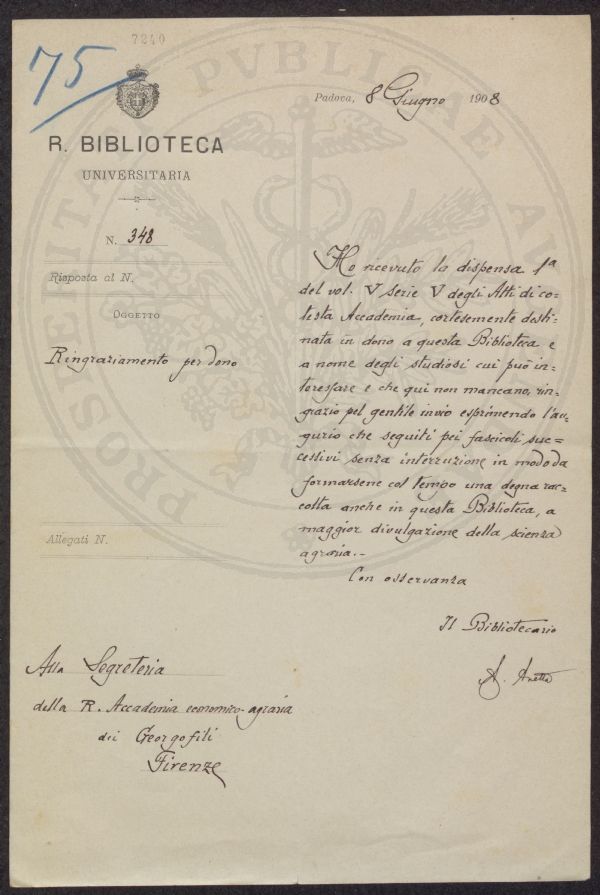 7240
75
Padova, 8 Giugno 1908
R. BIBLIOTECA
UNIVERSITARIA
N. 348
Risposta al N.
OGGETTO
Ringraziamento per dono
Ho ricevuto la dispensa 1a
del vol. V serie V degli Atti di co=
testa Accademia, cortesemente desti=
nata in dono a questa Biblioteca e
a nome degli studiosi cui può in=
teressare e che qui non mancano, rin=
grazio pel gentile invio esprimendo l'au=
gurio che seguiti pei fascicoli suc=
cessivi senza interruzione in modo da
formarsene col tempo una degna rac=
colta anche in questa Biblioteca, a
maggior divulgazione della scienza
agraria.-
Allegati N.
Con osservanza
Il Bibliotecario
Alla Segreteria
della R. Accademia economico-agraria
dei Georgofili
Firenze
PVBLICAE
PROSPERITATI